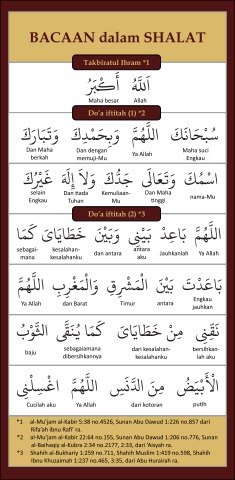 BACAAN dalam SHALAT
Takbiratul Ihram *1
اَللَّهُ أَكْبَرُ
Allah Maha besar
Do'a iftitah (1) *2
سُبْحَانَكَ اللَّهُمَّ وَبِحَمْدِكَ وَتَبَارَكَ
Maha suci Engkau Ya Allah Dan dengan memuji-Mu Dan Maha berkah
اسْمُكَ وَتَعَالَى جَدُّكَ وَلاَ إِلَهَ غَيْرُكَ
nama-Mu Dan Maha tinggi Kemuliaan-Mu Dan tiada Tuhan selain Engkau
Do'a iftitah (2) *3
اللَّهُمَّ بَاعِدْ بَيْنِي وَبَيْنَ خَطَايَايَ كَمَا
Ya Allah Jauhkanlah antara aku dan antara kesalahan-kesalahanku sebagai-mana
بَاعَدْتَ بَيْنَ الْمَشْرِقِ وَالْمَغْرِبِ اللَّهُمَّ
Engkau jauhkan antara Timur dan Barat Ya Allah
نَقِّنِي مِنْ خَطَايَايَ كَمَا يُنَقَّى الثَّوْبُ
bersihkan-lah aku dari kesalahan-kesalahanku sebagaimana dibersihkannya baju
الْأَبْيَضُ مِنَ الدَّنَسِ اللَّهُمَّ اغْسِلْنِي
putih dari kotoran Ya Allah Cucilah aku
*1 al-Mu'jam al-Kabir 5:38 no.4526, Sunan Abu Dawud 1:226 no.857 dari Rifa'ah ibnu Rafi' ra.
*2 al-Mu'jam al-Kabir 22:64 no.155, Sunan Abu Dawud 1:206 no.776, Sunan al-Baihaqiy al-Kubra 2:34 no.2177, 2:33, dari 'Aisyah ra.
*3 Shahih al-Bukhariy 1:259 no.711, Shahih Muslim 1:419 no.598, Shahih Ibnu Khuzaimah 1:237 no.465, 3:35, dari Abu Hurairah ra.